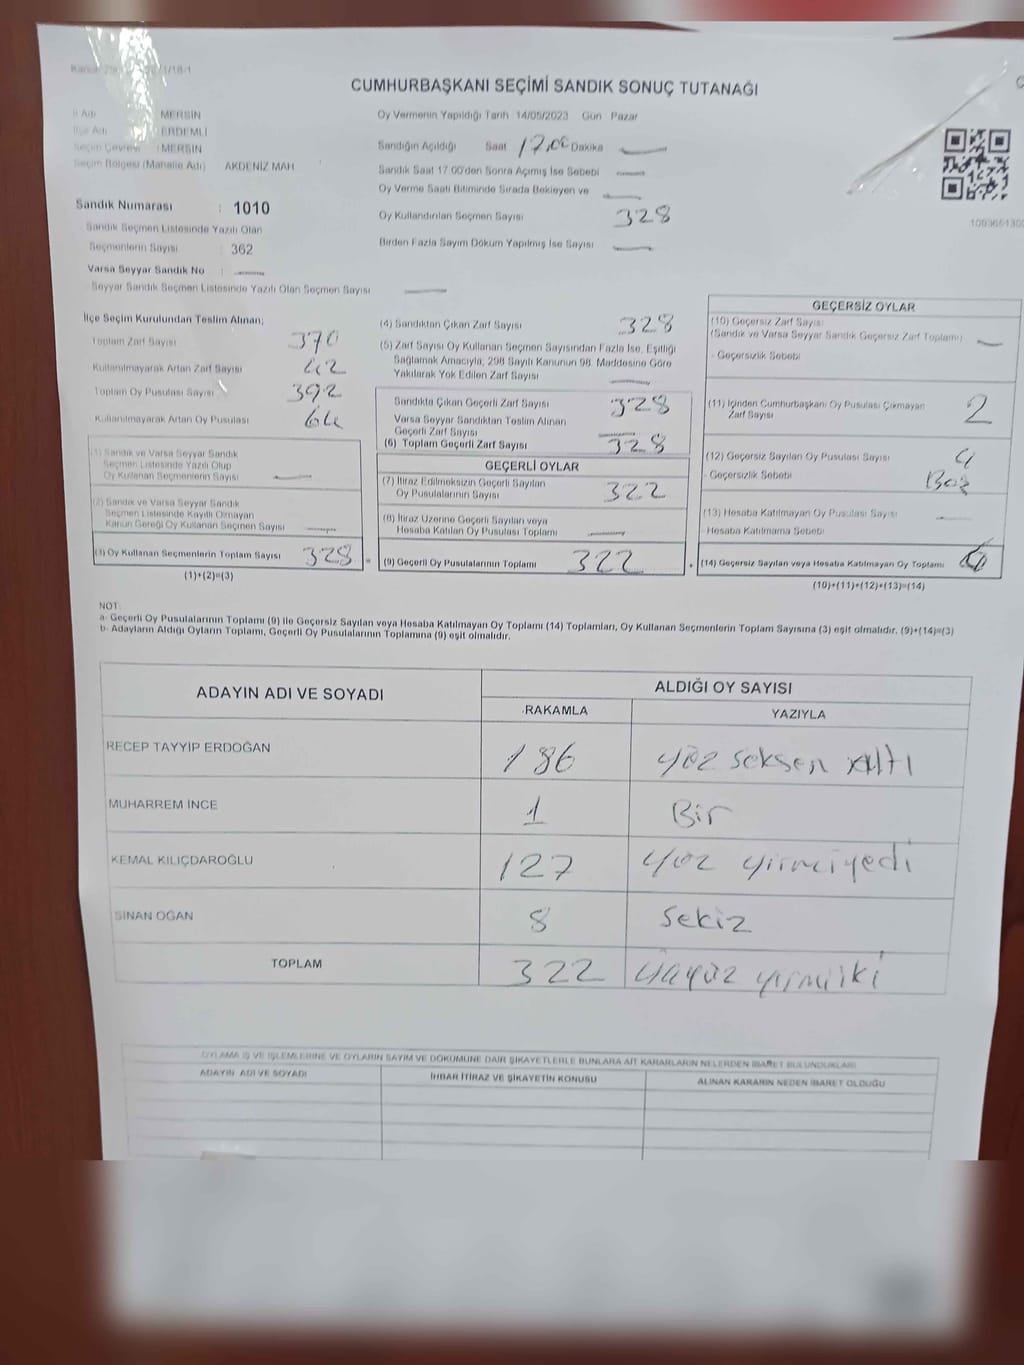 CUMHURBAŞKANI SEÇİMİ SANDIK SONUÇ TUTANAĞI
İl Adı MERSİN
İlçe Adı ERDEMLİ
Seçim Çevresi : MERSİN
Seçim Bölgesi (Mahalle Adı) AKDENİZ MAH
Sandık Numarası : 1010
Sandık Seçmen Listesinde Yazılı Olan
Seçmenlerin Sayısı : 362
Varsa Seyyar Sandık No :
Seyyar Sandık Seçmen Listesinde Yazılı Olan Seçmen Sayısı
Oy Vermenin Yapıldığı Tarih 14/05/2023 Gün Pazar
Sandığın Açıldığı Saat 17.00 Dakika
Sandık Saat 17.00'den Sonra Açmış İse Sebebi
Oy Verme Saati Bitiminde Sırada Bekleyen ve
Oy Kullandırılan Seçmen Sayısı 328
Birden Fazla Sayım Döküm Yapılmış İse Sayısı
İlçe Seçim Kurulundan Teslim Alınan;
Toplam Zarf Sayısı 370
Kullanılmayarak Artan Zarf Sayısı 42
Toplam Oy Pusulası Sayısı 392
Kullanılmayarak Artan Oy Pusulası 64
(1) Sandık ve Varsa Seyyar Sandık
Seçmen Listesinde Yazılı Olup
Oy Kullanan Seçmenlerin Sayısı
(2) Sandık ve Varsa Seyyar Sandık
Seçmen Listesinde Kayıtlı Olmayan
Kanun Gereği Oy Kullanan Seçmen Sayısı
(3) Oy Kullanan Seçmenlerin Toplam Sayısı 328 =
(1)+(2)=(3)
(4) Sandıktan Çıkan Zarf Sayısı 328
(5) Zarf Sayısı Oy Kullanan Seçmen Sayısından Fazla İse, Eşitliği
Sağlamak Amacıyla, 298 Sayılı Kanunun 98. Maddesine Göre
Yakılarak Yok Edilen Zarf Sayısı
Sandıkta Çıkan Geçerli Zarf Sayısı 328
Varsa Seyyar Sandıktan Teslim Alınan
Geçerli Zarf Sayısı
(6) Toplam Geçerli Zarf Sayısı 328
GEÇERLİ OYLAR
(7) İtiraz Edilmeksizin Geçerli Sayılan
Oy Pusulalarının Sayısı 322
(8) İtiraz Üzerine Geçerli Sayılan veya
Hesaba Katılan Oy Pusulası Toplamı
(9) Geçerli Oy Pusulalarının Toplamı 322 +
GEÇERSİZ OYLAR
(10) Geçersiz Zarf Sayısı
(Sandık ve Varsa Seyyar Sandık Geçersiz Zarf Toplamı)
- Geçersizlik Sebebi
(11) İçinden Cumhurbaşkanı Oy Pusulası Çıkmayan
Zarf Sayısı 2
(12) Geçersiz Sayılan Oy Pusulası Sayısı 4
- Geçersizlik Sebebi Boz
(13) Hesaba Katılmayan Oy Pusulası Sayısı
Hesaba Katılmama Sebebi
(14) Geçersiz Sayılan veya Hesaba Katılmayan Oy Toplamı
(10)+(11)+(12)+(13)=(14)
NOT:
a- Geçerli Oy Pusulalarının Toplamı (9) ile Geçersiz Sayılan veya Hesaba Katılmayan Oy Toplamı (14) Toplamları, Oy Kullanan Seçmenlerin Toplam Sayısına (3) eşit olmalıdır. (9)+(14)=(3)
b- Adayların Aldığı Oyların Toplamı, Geçerli Oy Pusulalarının Toplamına (9) eşit olmalıdır.
ADAYIN ADI VE SOYADI ALDIĞI OY SAYISI
RAKAMLA YAZIYLA
RECEP TAYYİP ERDOĞAN 186 yüz seksen altı
MUHARREM İNCE 1 Bir
KEMAL KILIÇDAROĞLU 127 yüz yirmiyedi
SİNAN OĞAN 8 Sekiz
TOPLAM 322 üçyüz yirmiiki
OYLAMA İŞ VE İŞLEMLERİNE VE OYLARIN SAYIM VE DÖKÜMÜNE DAİR ŞİKAYETLERLE BUNLARA AİT KARARLARIN NELERDEN İBARET BULUNDUKLARI
ADAYIN ADI VE SOYADI İHBAR İTİRAZ VE ŞİKAYETİN KONUSU ALINAN KARARIN NEDEN İBARET OLDUĞU